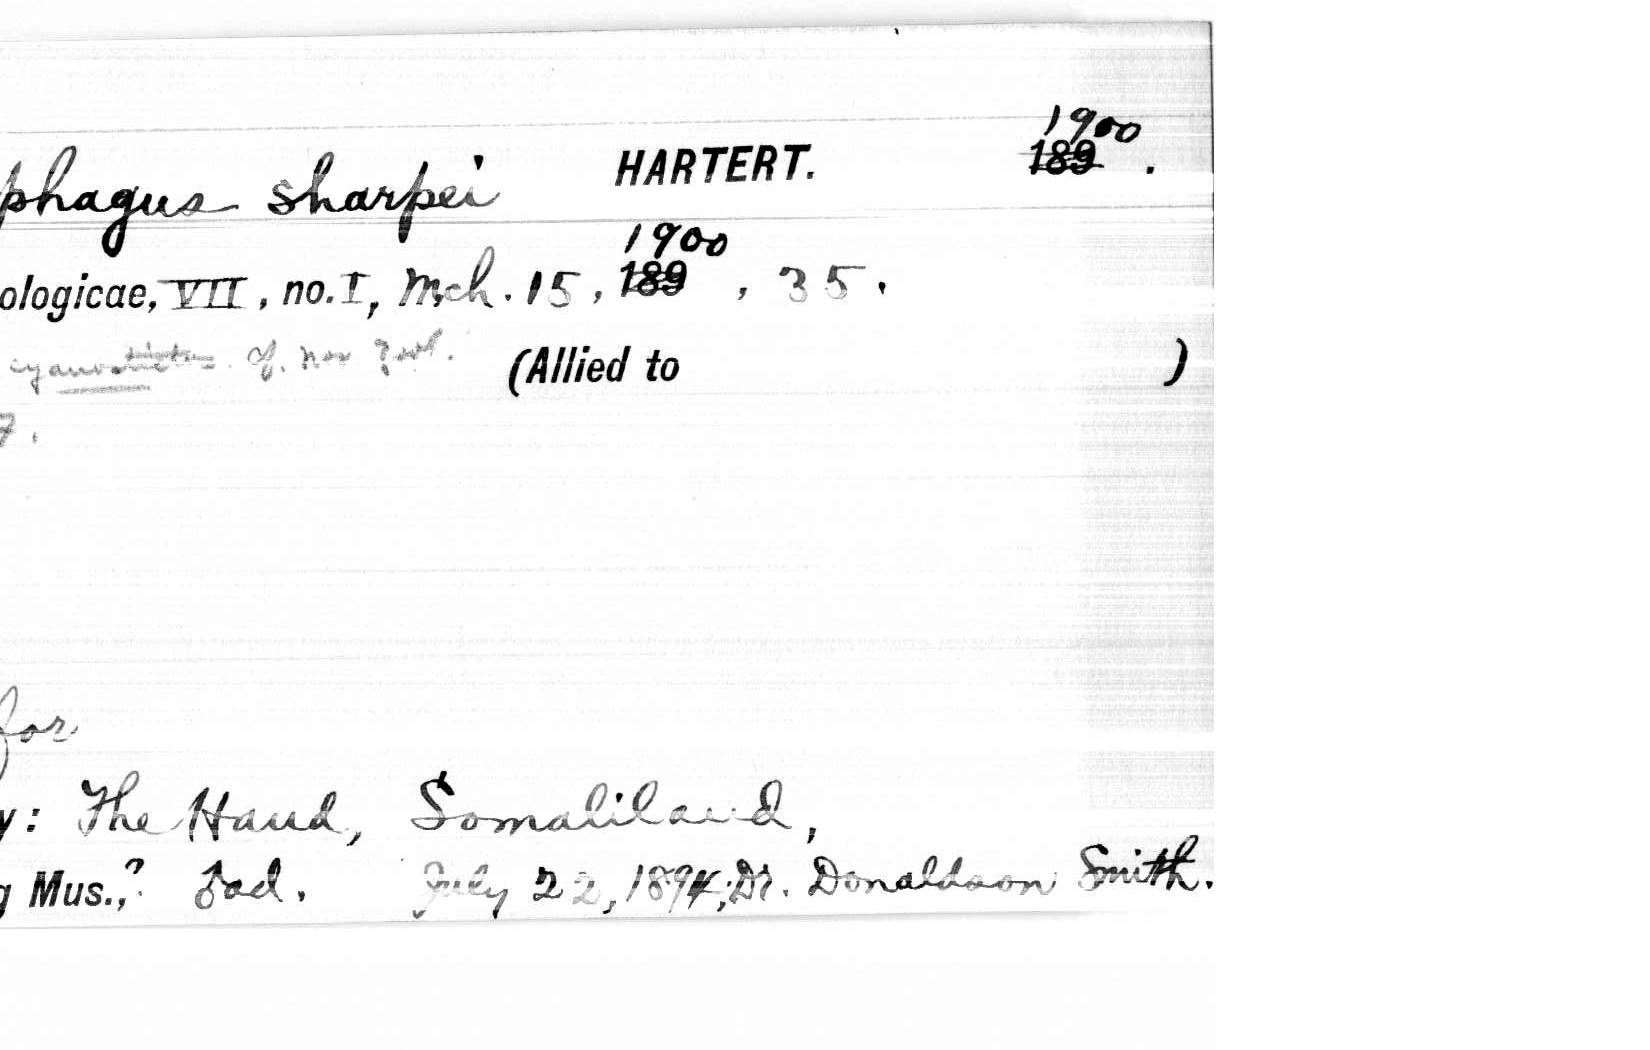 1900
phagus sharpei HARTERT. 189 .
1900
ologicae, VII, no. I, Mch. 15, 189 , 35.
cyanostictus cf. Nov Zool. (Allied to )
7.
for
y: The Haud, Somaliland,
g Mus.,? ad. July 22, 1894; Dr. Donaldson Smith.